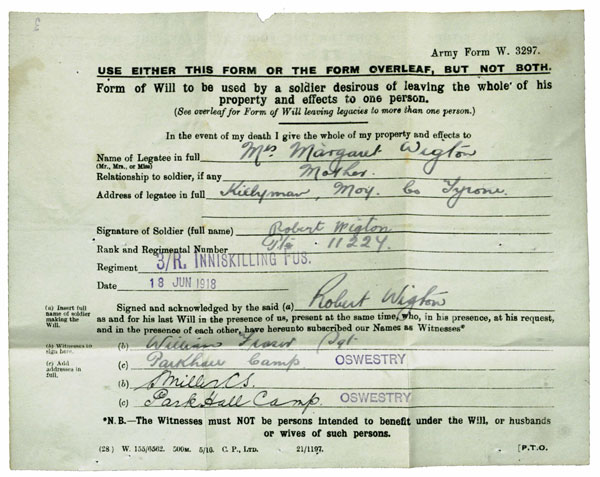 Army Form W. 3297.
USE EITHER THIS FORM OR THE FORM OVERLEAF, BUT NOT BOTH.
Form of Will to be used by a soldier desirous of leaving the whole of his
property and effects to one person.
(See overleaf for Form of Will leaving legacies to more than one person.)
In the event of my death I give the whole of my property and effects to
Name of Legatee in full Mrs Margaret Wigton
(Mr., Mrs., or Miss)
Relationship to soldier, if any Mother.
Address of legatee in full Killyman, Moy. Co Tyrone.
Signature of Soldier (full name) Robert Wigton
Rank and Regimental Number Pte 11224.
Regiment 3/R. INNISKILLING FUS.
Date 18 JUN 1918
(a) Insert full
name of soldier
making the
Will.
Signed and acknowledged by the said (a) Robert Wigton
as and for his last Will in the presence of us, present at the same time, who, in his presence, at his request,
and in the presence of each other, have hereunto subscribed our Names as Witnesses*
(b) Witnesses to
sign here.
(b) William Fraser Sgt
(c) Add
addresses in
full.
(c) Parkhall Camp OSWESTRY
(b) S Miller
(c) Park Hall Camp. OSWESTRY
*N.B.—The Witnesses must NOT be persons intended to benefit under the Will, or husbands
or wives of such persons.
(28) W. 155/6562. 500M. 5/16. C. P., LTD. 21/1197. [P.T.O.